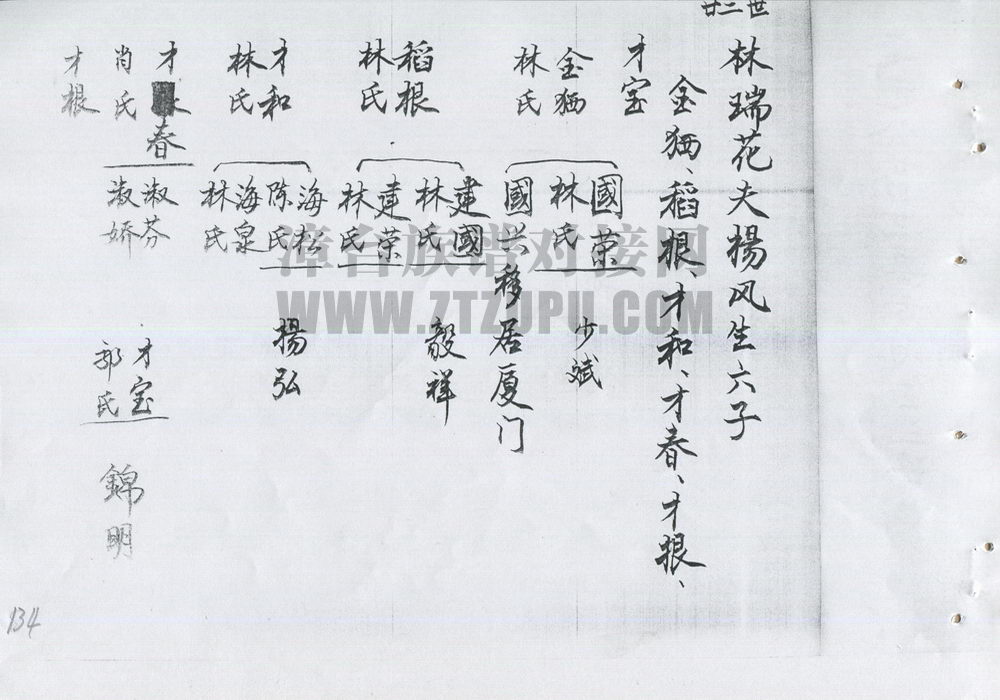 廿三世
林瑞花夫揚风生六子
金猫、稻根、才和、才春、才根、
才宝
金猫
林氏
國荣
林氏
少斌
國兴移居厦门
稻根
林氏
建國
林氏
毅祥
建荣
林氏
才和
林氏
海松
陈氏
揚弘
海泉
林氏
才春
肖氏
淑芬
淑娇
才根
才宝
郭氏
錦明
134
漳台族谱对接网
WWW.ZTZUPU.COM